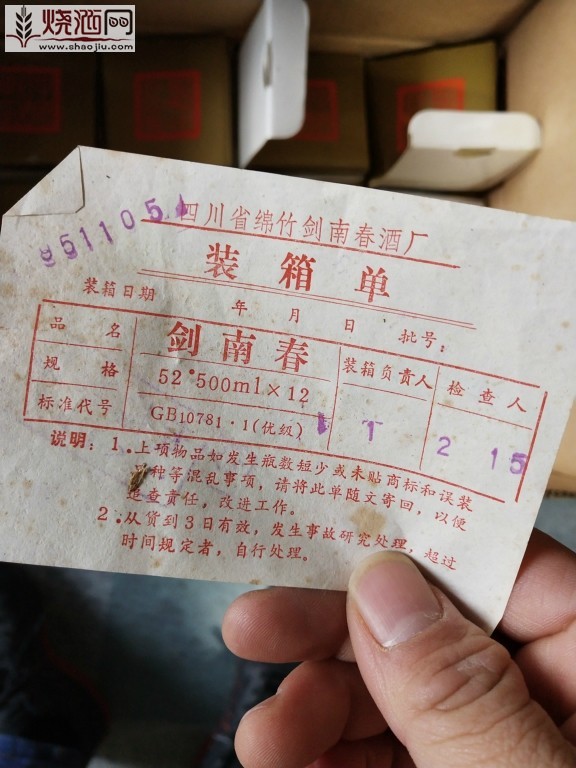 烧酒网
www.shaojiu.com
9511054
四川省绵竹剑南春酒厂
装箱单
装箱日期 年 月 日 批号：
品名 剑南春 装箱负责人 检查人
规格 52°500ml×12 1 2 15
标准代号 GB10781·1(优级)
说明：1.上项物品如发生瓶数短少或未贴商标和误装
种等混乱事项，请将此单随文寄回，以便
追查责任，改进工作。
2.从货到3日有效，发生事故研究处理，超过
时间规定者，自行处理。